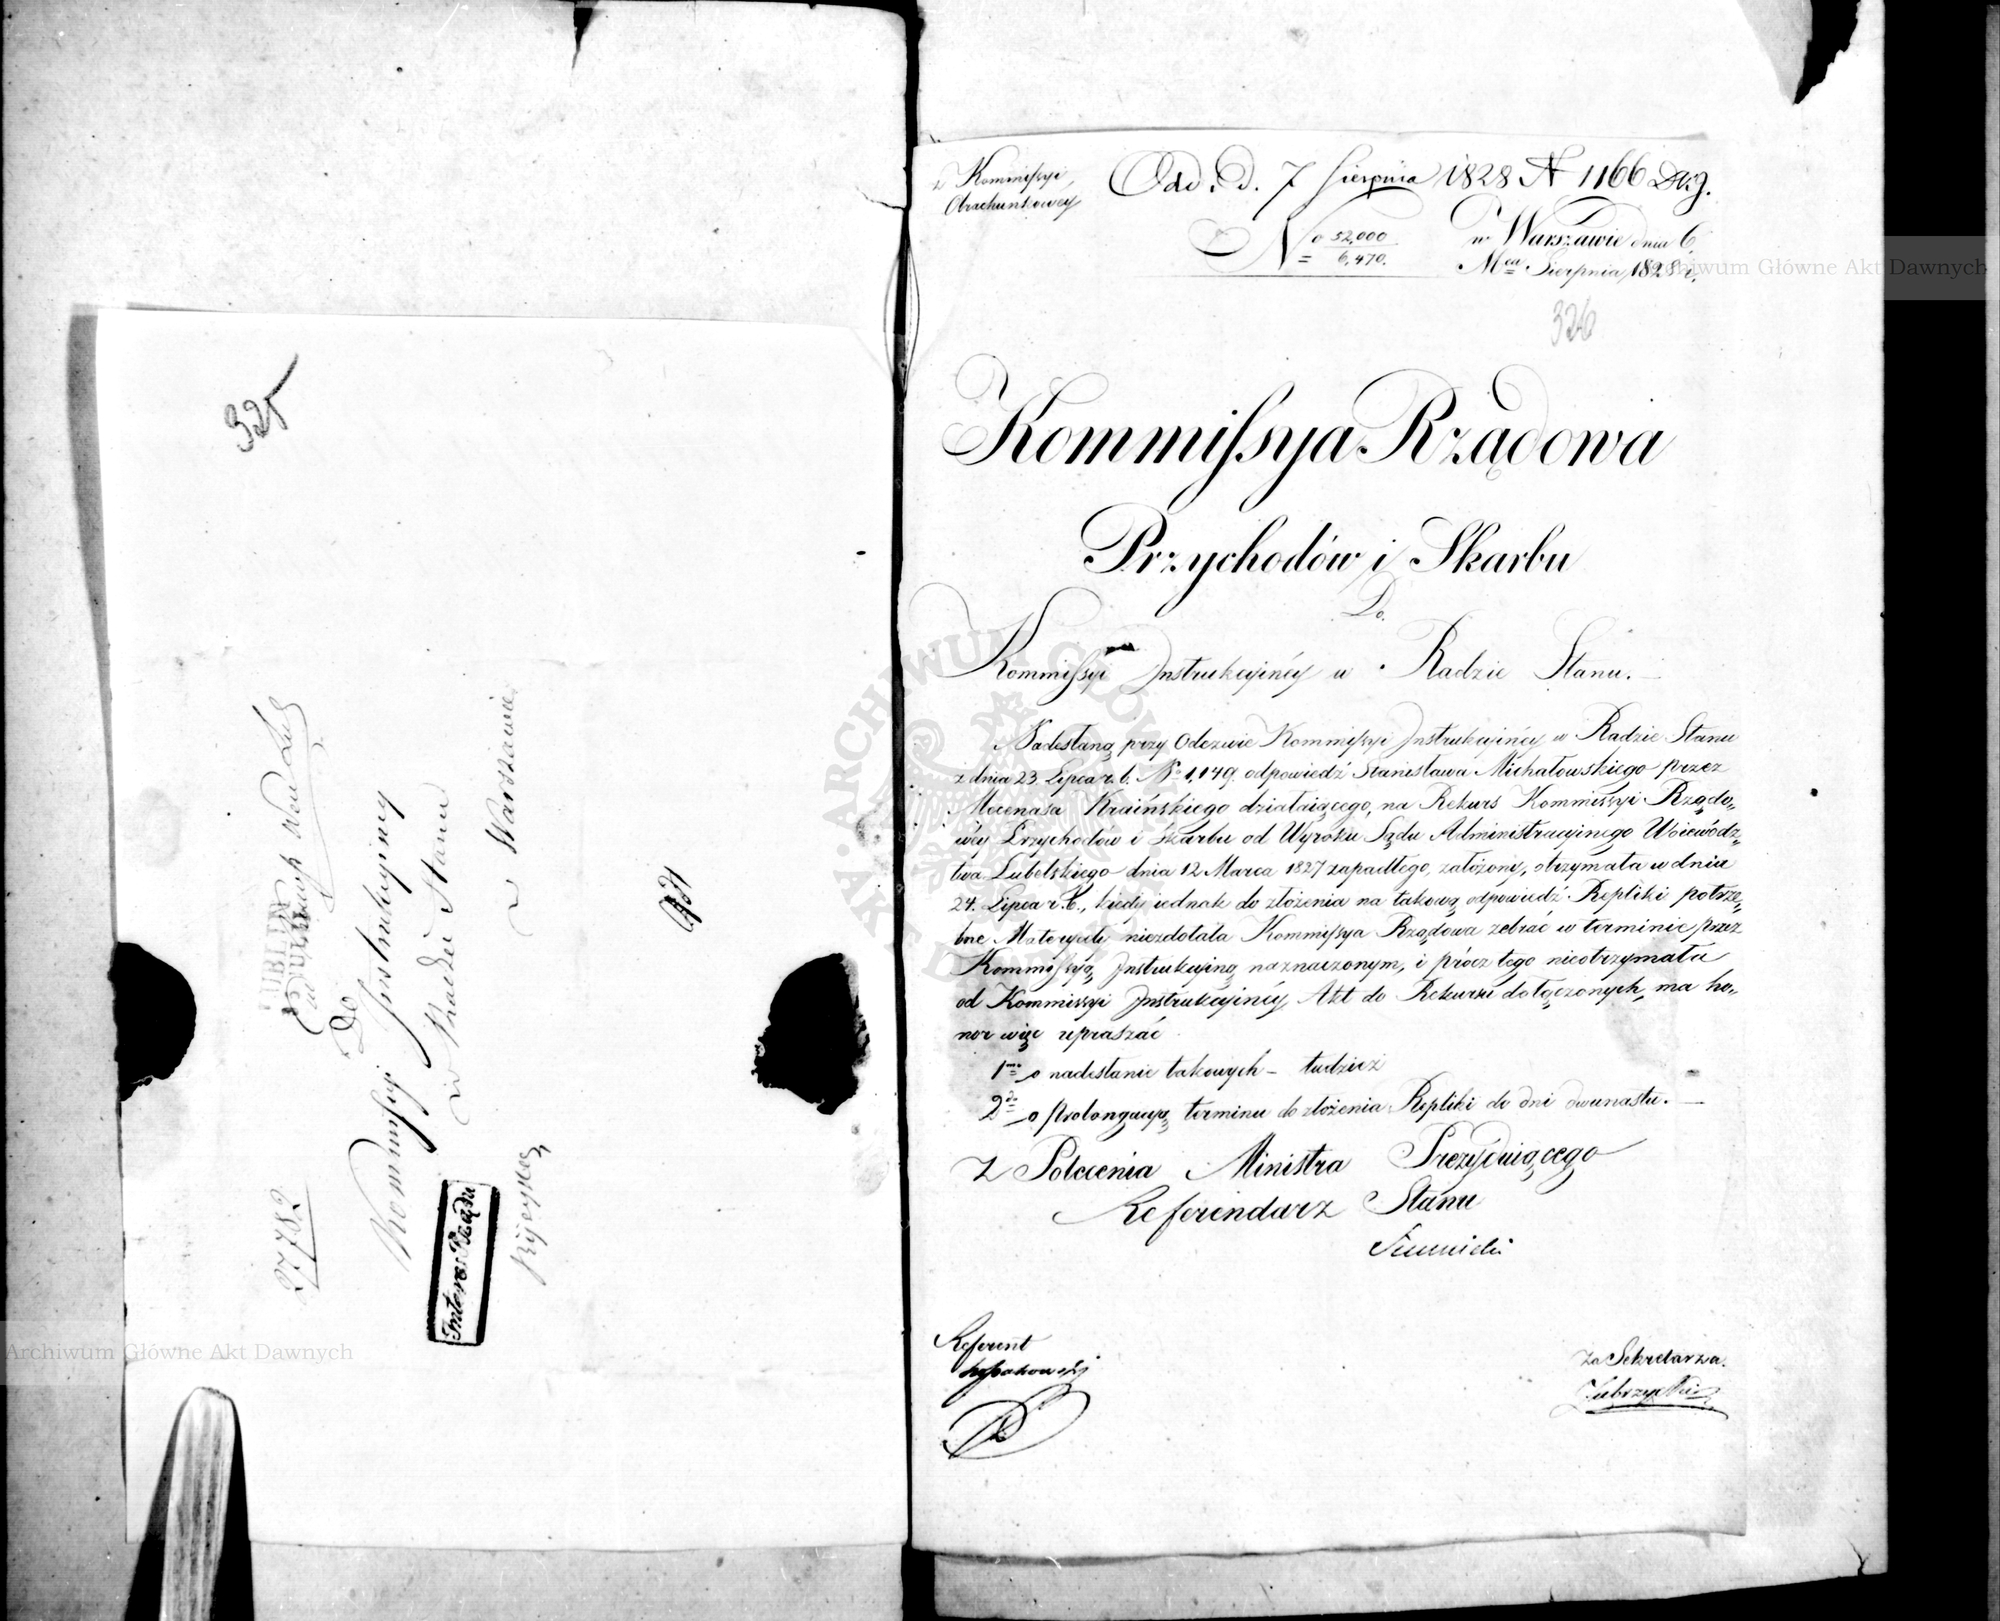 325
LUBLIN
27782
Do
Kommissyi Instrukcyiney
w Radzie Stanu
w Warszawie
Interes: Rządu
z Kommissyi
Obrachunkowey
Odd. d. 7 Sierpnia 1828 N 1166 Dkg.
No 52,000
6,470.
w Warszawie dnia 6
Mca Sierpnia 1828 r.
326
Kommissya Rządowa
Przychodów i Skarbu
Do
Kommissyi Instrukcyinéy w Radzie Stanu.
Nadesłaną przy Odezwie Kommissyi Instrukcyinéy w Radzie Stanu
z dnia 23 Lipca r. b. No 1,149. odpowiedź Stanisława Michałowskiego przez
Mecenasa Kraińskiego działaiącego, na Rekurs Kommissyi Rządo„
wéy Przychodów i Skarbu od Wyroku Sądu Administracyinego Woiewódz„
twa Lubelskiego dnia 12 Marca 1827 zapadłego, założony, otrzymała w dniu
24. Lipca r. b., kiedy iednak do złożenia na takową odpowiedź Repliki potrze„
bne Materyały niezdołała Kommissya Rządowa zebrać w terminie przez
Kommissyą Instrukcyiną naznaczonym, i prócz tego nieotrzymała
od Kommissyi Instrukcyinéy Akt do Rekursu dołączonych, ma ho„
nor więc upraszać
1mo o nadesłanie takowych – tudzież
2do o prolongacyą terminu do złożenia Repliki do dni dwunastu. —
Z Polecenia Ministra Prezyduiącego
Referendarz Stanu
Referent
Za Sekretarza.
Archiwum Główne Akt Dawnych
Archiwum Główne Akt Dawnych
ARCHIWUM GŁÓWNE AKT DAWNYCH